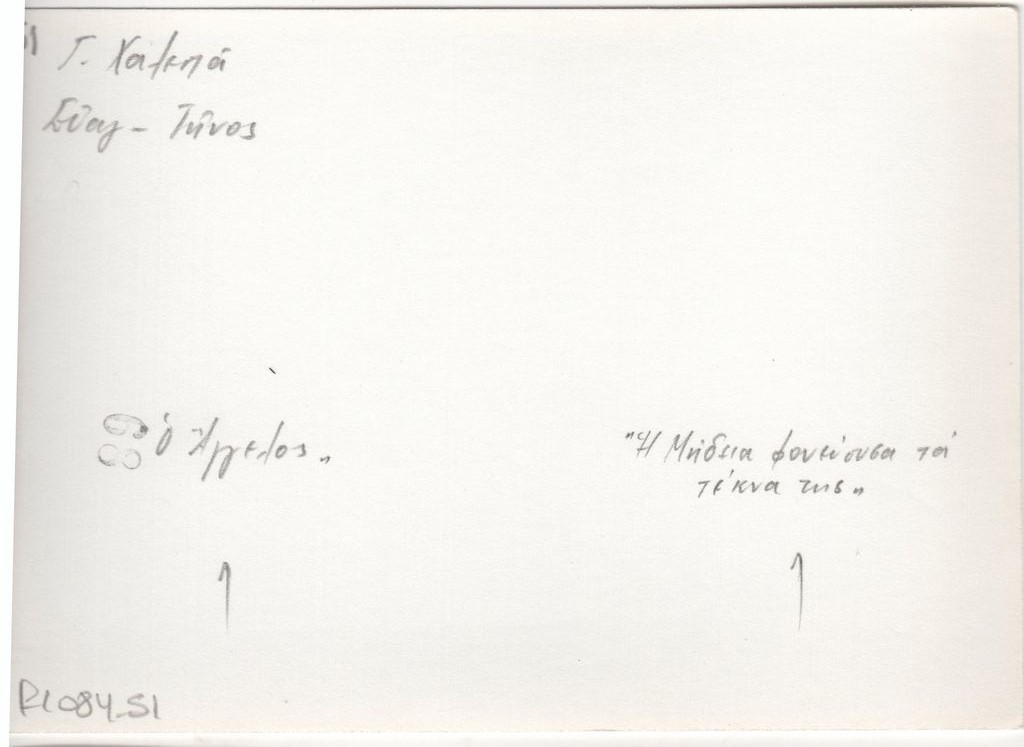 Γ. Χαλεπά
Τήνος
89
"Ὁ Ἄγγελος„
"Ἡ Μήδεια φονεύουσα τά
τέκνα της„
R1084_S1